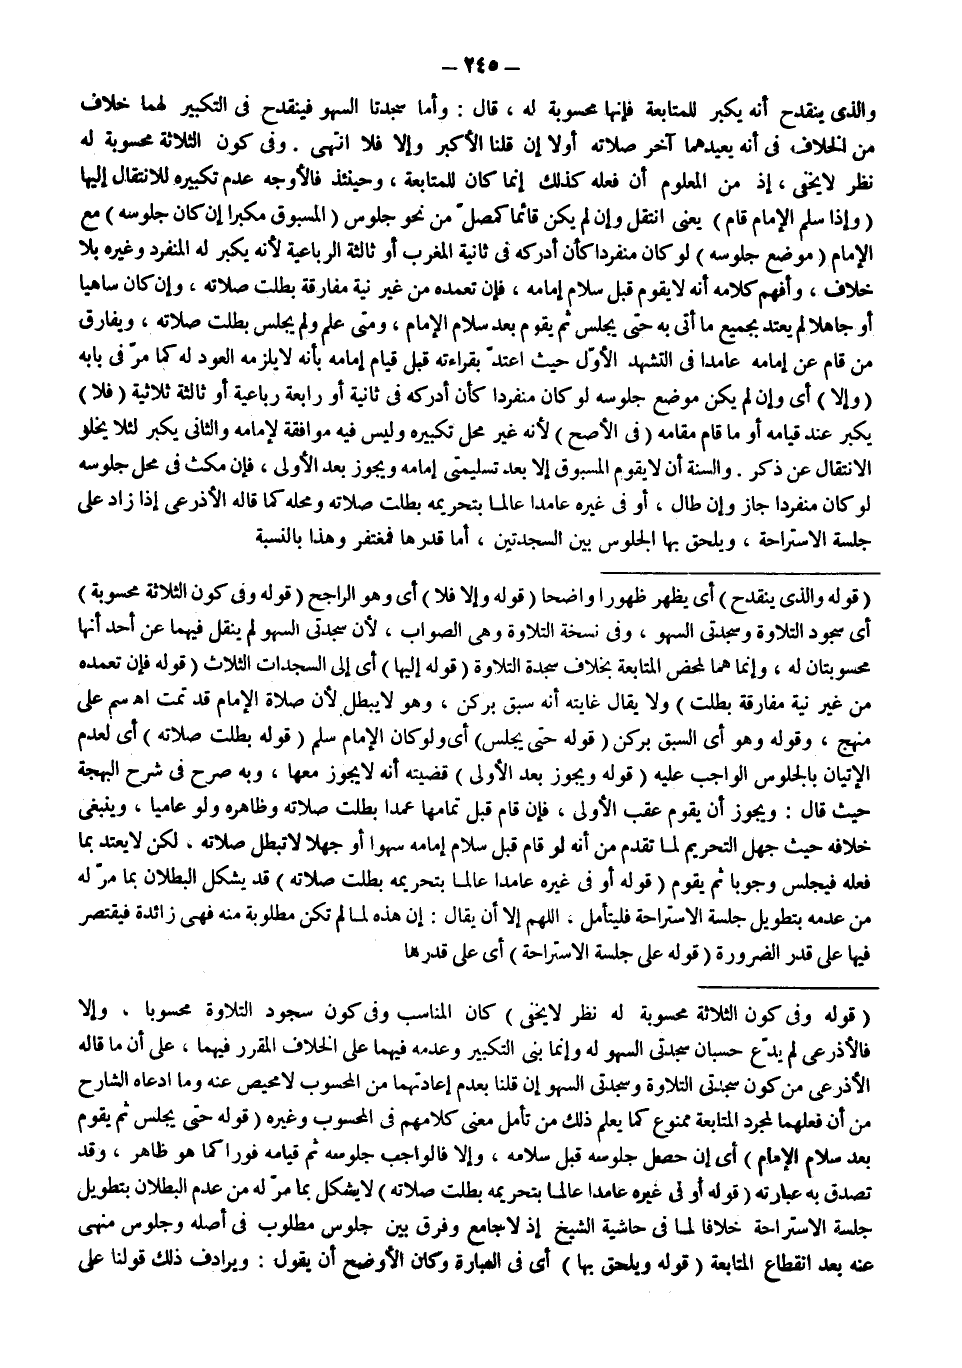 – ٢٤٥ –
والذى ينقدح أنه يكبر للمتابعة فإنها محسوبة له ، قال : وأما سجدتا السهو فينقدح فى التكبير لهما خلاف
من الخلاف فى أنه يعيدهما آخر صلاته أولا إن قلنا الأكبر وإلا فلا انتهى . وفى كون الثلاثة محسوبة له
نظر لايخفى ، إذ من المعلوم أن فعله كذلك إنما كان للمتابعة ، وحينئذ فالأوجه عدم تكبيره للانتقال إليها
( وإذا سلم الإمام قام ) يعنى انتقل وإن لم يكن قائما كمصلّ من نحو جلوس ( المسبوق مكبرا إن كان جلوسه ) مع
الإمام ( موضع جلوسه ) لو كان منفردا كأن أدركه فى ثانية المغرب أو ثالثة الرباعية لأنه يكبر له المنفرد وغيره بلا
خلاف ، وأفهم كلامه أنه لايقوم قبل سلام إمامه ، فإن تعمده من غير نية مفارقة بطلت صلاته ، وإن كان ساهيا
أو جاهلا لم يعتد بجميع ما أتى به حتى يجلس ثم يقوم بعد سلام الإمام ، ومتى علم ولم يجلس بطلت صلاته ، ويفارق
من قام عن إمامه عامدا فى التشهد الأوّل حيث اعتدّ بقراءته قبل قيام إمامه بأنه لايلزمه العود له كما مرّ فى بابه
( وإلا ) أى وإن لم يكن موضع جلوسه لو كان منفردا كأن أدركه فى ثانية أو رابعة رباعية أو ثالثة ثلاثية ( فلا )
يكبر عند قيامه أو ما قام مقامه ( فى الأصح ) لأنه غير محل تكبيره وليس فيه موافقة لإمامه والثانى يكبر لئلا يخلو
الانتقال عن ذكر . والسنة أن لايقوم المسبوق إلا بعد تسليمتى إمامه ويجوز بعد الأولى ، فإن مكث فى محل جلوسه
لو كان منفردا جاز وإن طال ، أو فى غيره عامدا عالما بتحريمه بطلت صلاته ومحله كما قاله الأذرعى إذا زاد على
جلسة الاستراحة ، ويلحق بها الجلوس بين السجدتين ، أما قدرها فمغتفر وهذا بالنسبة
( قوله والذى ينقدح ) أى يظهر ظهورا واضحا ( قوله وإلا فلا ) أى وهو الراجح ( قوله وفى كون الثلاثة محسوبة )
أى سجود التلاوة وسجدتى السهو ، وفى نسخة التلاوة وهى الصواب ، لأن سجدتى السهو لم ينقل فيهما عن أحد أنها
محسوبتان له ، وإنما هما لمحض المتابعة بخلاف سجدة التلاوة ( قوله إليها ) أى إلى السجدات الثلاث ( قوله فإن تعمده
من غير نية مفارقة بطلت ) ولا يقال غايته أنه سبق بركن ، وهو لايبطل لأن صلاة الإمام قد تمت اه سم على
منهج ، وقوله وهو أى السبق بركن ( قوله حتى يجلس) أى ولو كان الإمام سلم ( قوله بطلت صلاته ) أى لعدم
الإتيان بالجلوس الواجب عليه ( قوله ويجوز بعد الأولى ) قضيته أنه لايجوز معها ، وبه صرح فى شرح البهجة
حيث قال : ويجوز أن يقوم عقب الأولى ، فإن قام قبل تمامها عمدا بطلت صلاته وظاهره ولو عاميا ، وينبغى
خلافه حيث جهل التحريم لما تقدم من أنه لو قام قبل سلام إمامه سهوا أو جهلا لاتبطل صلاته ، لكن لايعتد بما
فعله فيجلس وجوبا ثم يقوم ( قوله أو فى غيره عامدا عالما بتحريمه بطلت صلاته ) قد يشكل البطلان بما مرّ له
من عدمه بتطويل جلسة الاستراحة فليتأمل ، اللهم إلا أن يقال : إن هذه لما لم تكن مطلوبة منه فهى زائدة فيقتصر
فيها على قدر الضرورة ( قوله على جلسة الاستراحة ) أى على قدرها
( قوله وفى كون الثلاثة محسوبة له نظر لايخفى ) كان المناسب وفى كون سجود التلاوة محسوبا ، وإلا
فالأذرعى لم يدّع حسبان سجدتى السهو له وإنما بنى التكبير وعدمه فيهما على الخلاف المقرر فيهما ، على أن ما قاله
الأذرعى من كون سجدتى التلاوة وسجدتى السهو إن قلنا بعدم إعادتهما من المحسوب لامحيص عنه وما ادعاه الشارح
من أن فعلهما لمجرد المتابعة ممنوع كما يعلم ذلك من تأمل معنى كلامهم فى المحسوب وغيره ( قوله حتى يجلس ثم يقوم
بعد سلام الإمام ) أى إن حصل جلوسه قبل سلامه ، وإلا فالواجب جلوسه ثم قيامه فورا كما هو ظاهر ، وقد
تصدق به عبارته ( قوله أو فى غيره عامدا عالما بتحريمه بطلت صلاته ) لايشكل بما مرّ له من عدم البطلان بتطويل
جلسة الاستراحة خلافا لما فى حاشية الشيخ إذ لاجامع وفرق بين جلوس مطلوب فى أصله وجلوس منهى
عنه بعد انقطاع المتابعة ( قوله ويلحق بها ) أى فى العبارة وكان الأوضح أن يقول : ويرادف ذلك قولنا على